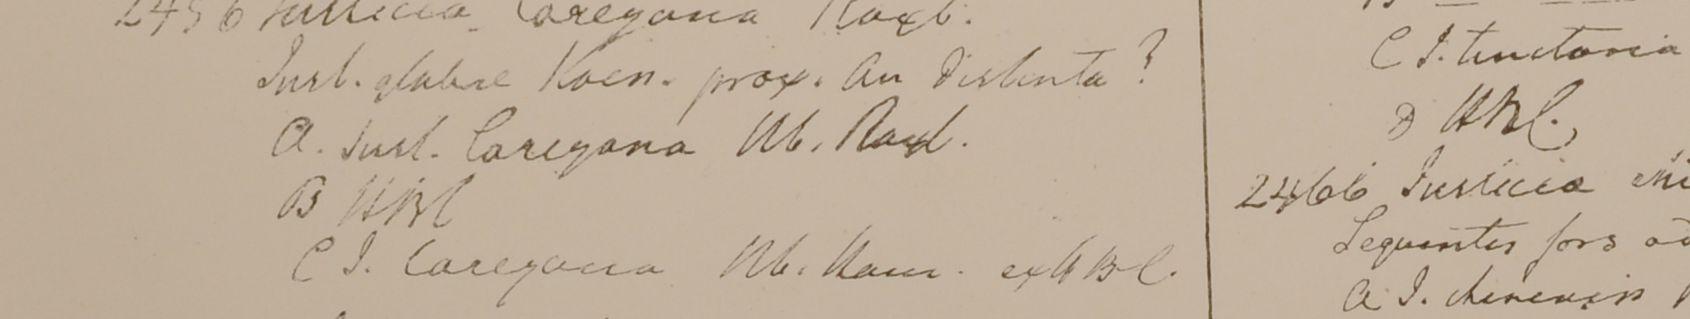 2456 Justicia Caregana Roxb.
Just. glabre Koen. prox. an distincta?
A. Just. Caregana Hb. Roxb.
B HBC
C J. Caregana Hb. Ham. ex HBC.
C J. tinctoria
D HBC.
2466 Justicia
Sequentis fors ad
A J. chinensis